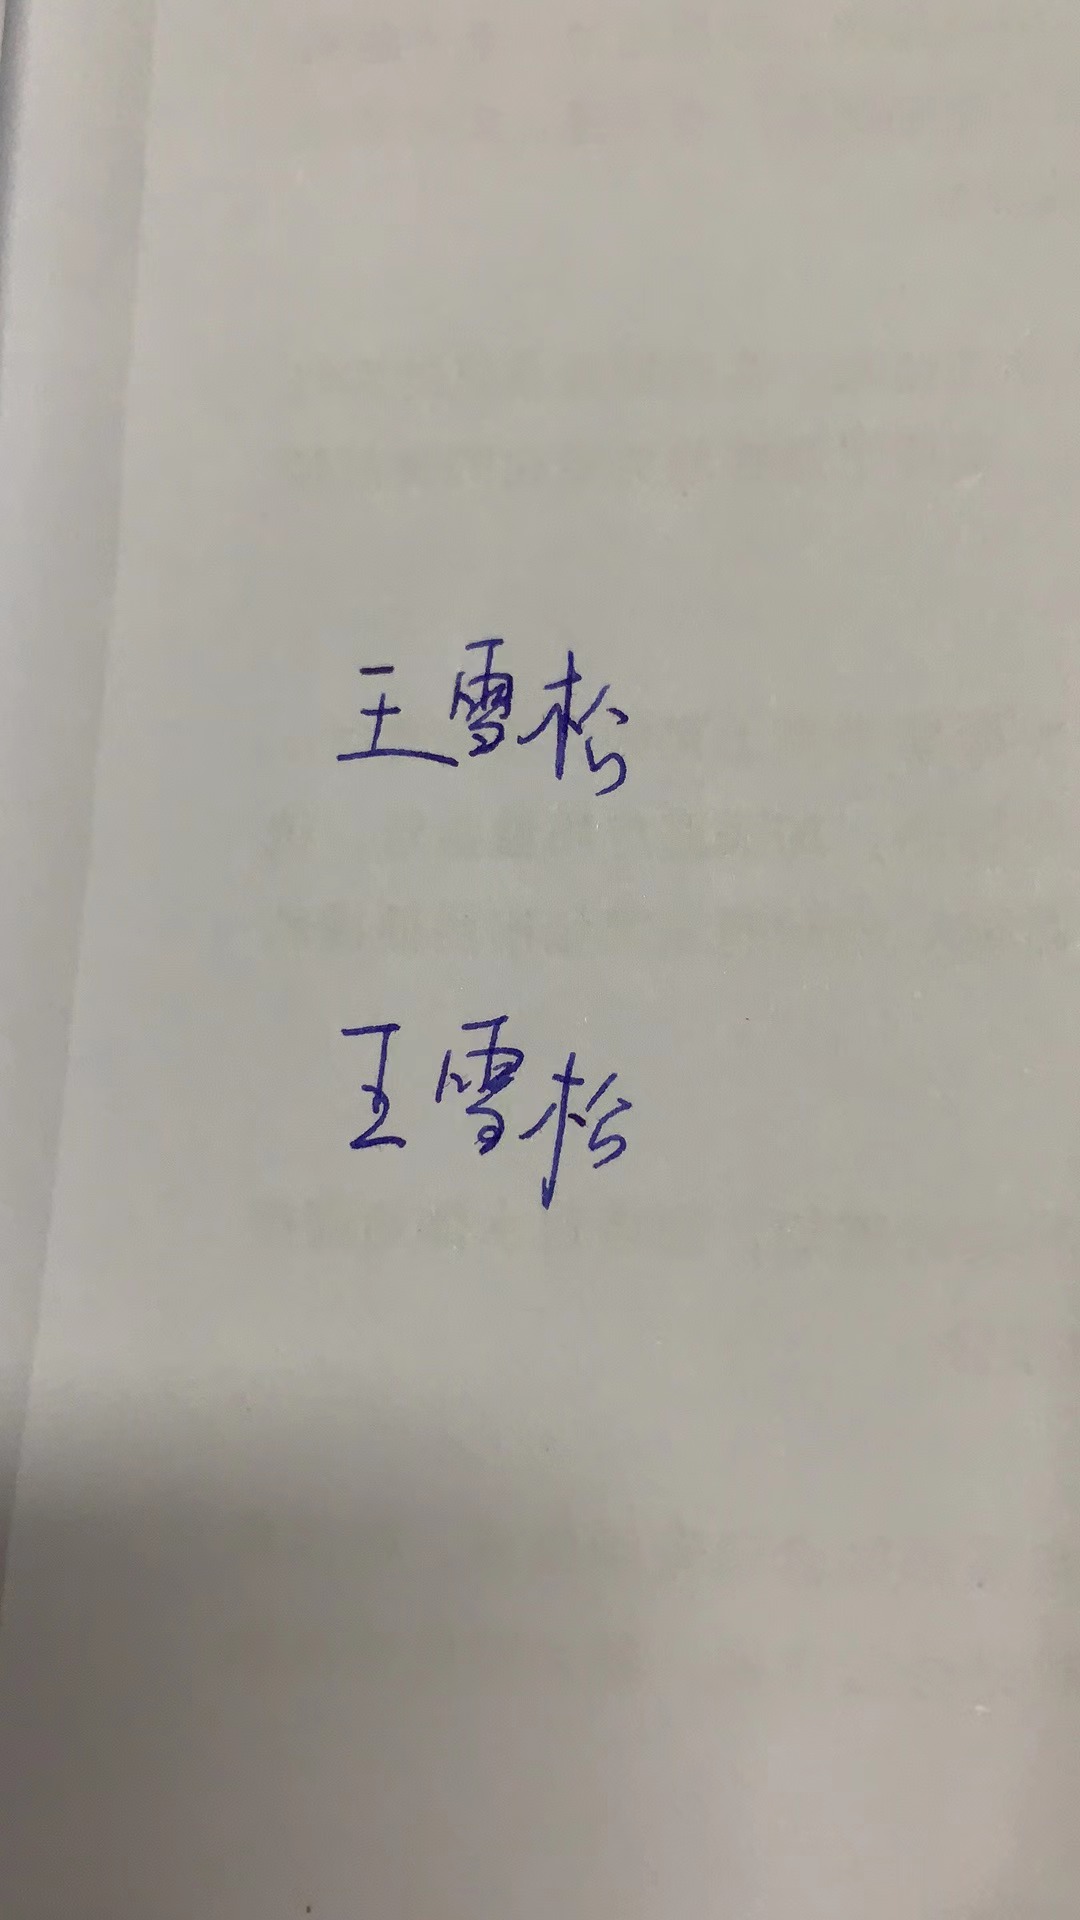 王雪松
王雪松